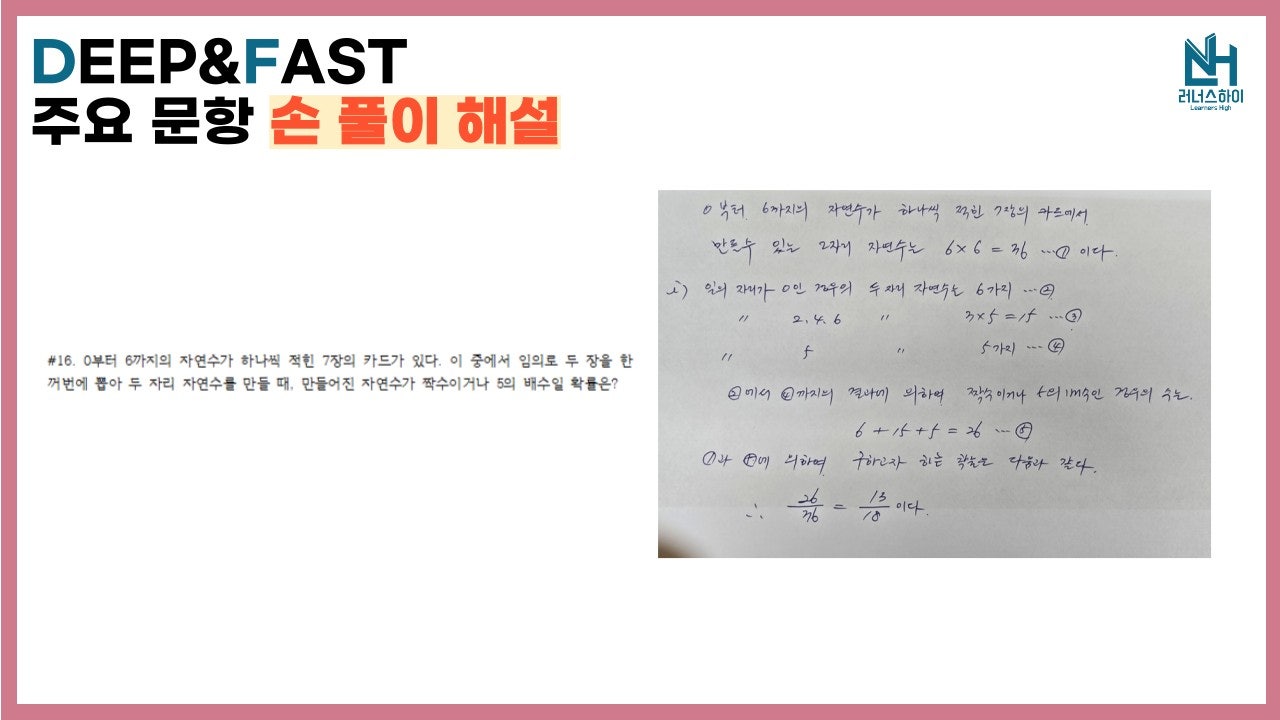 DEEP&FAST
주요 문항 손 풀이 해설
러너스하이
Learners High
#16. 0부터 6까지의 자연수가 하나씩 적힌 7장의 카드가 있다. 이 중에서 임의로 두 장을 한
꺼번에 뽑아 두 자리 자연수를 만들 때, 만들어진 자연수가 짝수이거나 5의 배수일 확률은?
0부터 6까지의 자연수가 하나씩 적힌 7장의 카드에서
만들수 있는 2자리 자연수는 6×6 = 36 … ① 이다.
i) 일의 자리가 0인 경우의 두자리 자연수는 6가지 … ②
〃 2.4.6 〃 3×5 = 15 … ③
〃 5 〃 5가지 … ④
②에서 ④까지의 결과에 의하여 짝수이거나 5의 배수인 경우의 수는.
6 + 15 + 5 = 26 … ⑤
①과 ⑤에 의하여 구하고자 하는 확률은 다음과 같다.
∴ 26/36 = 13/18 이다.